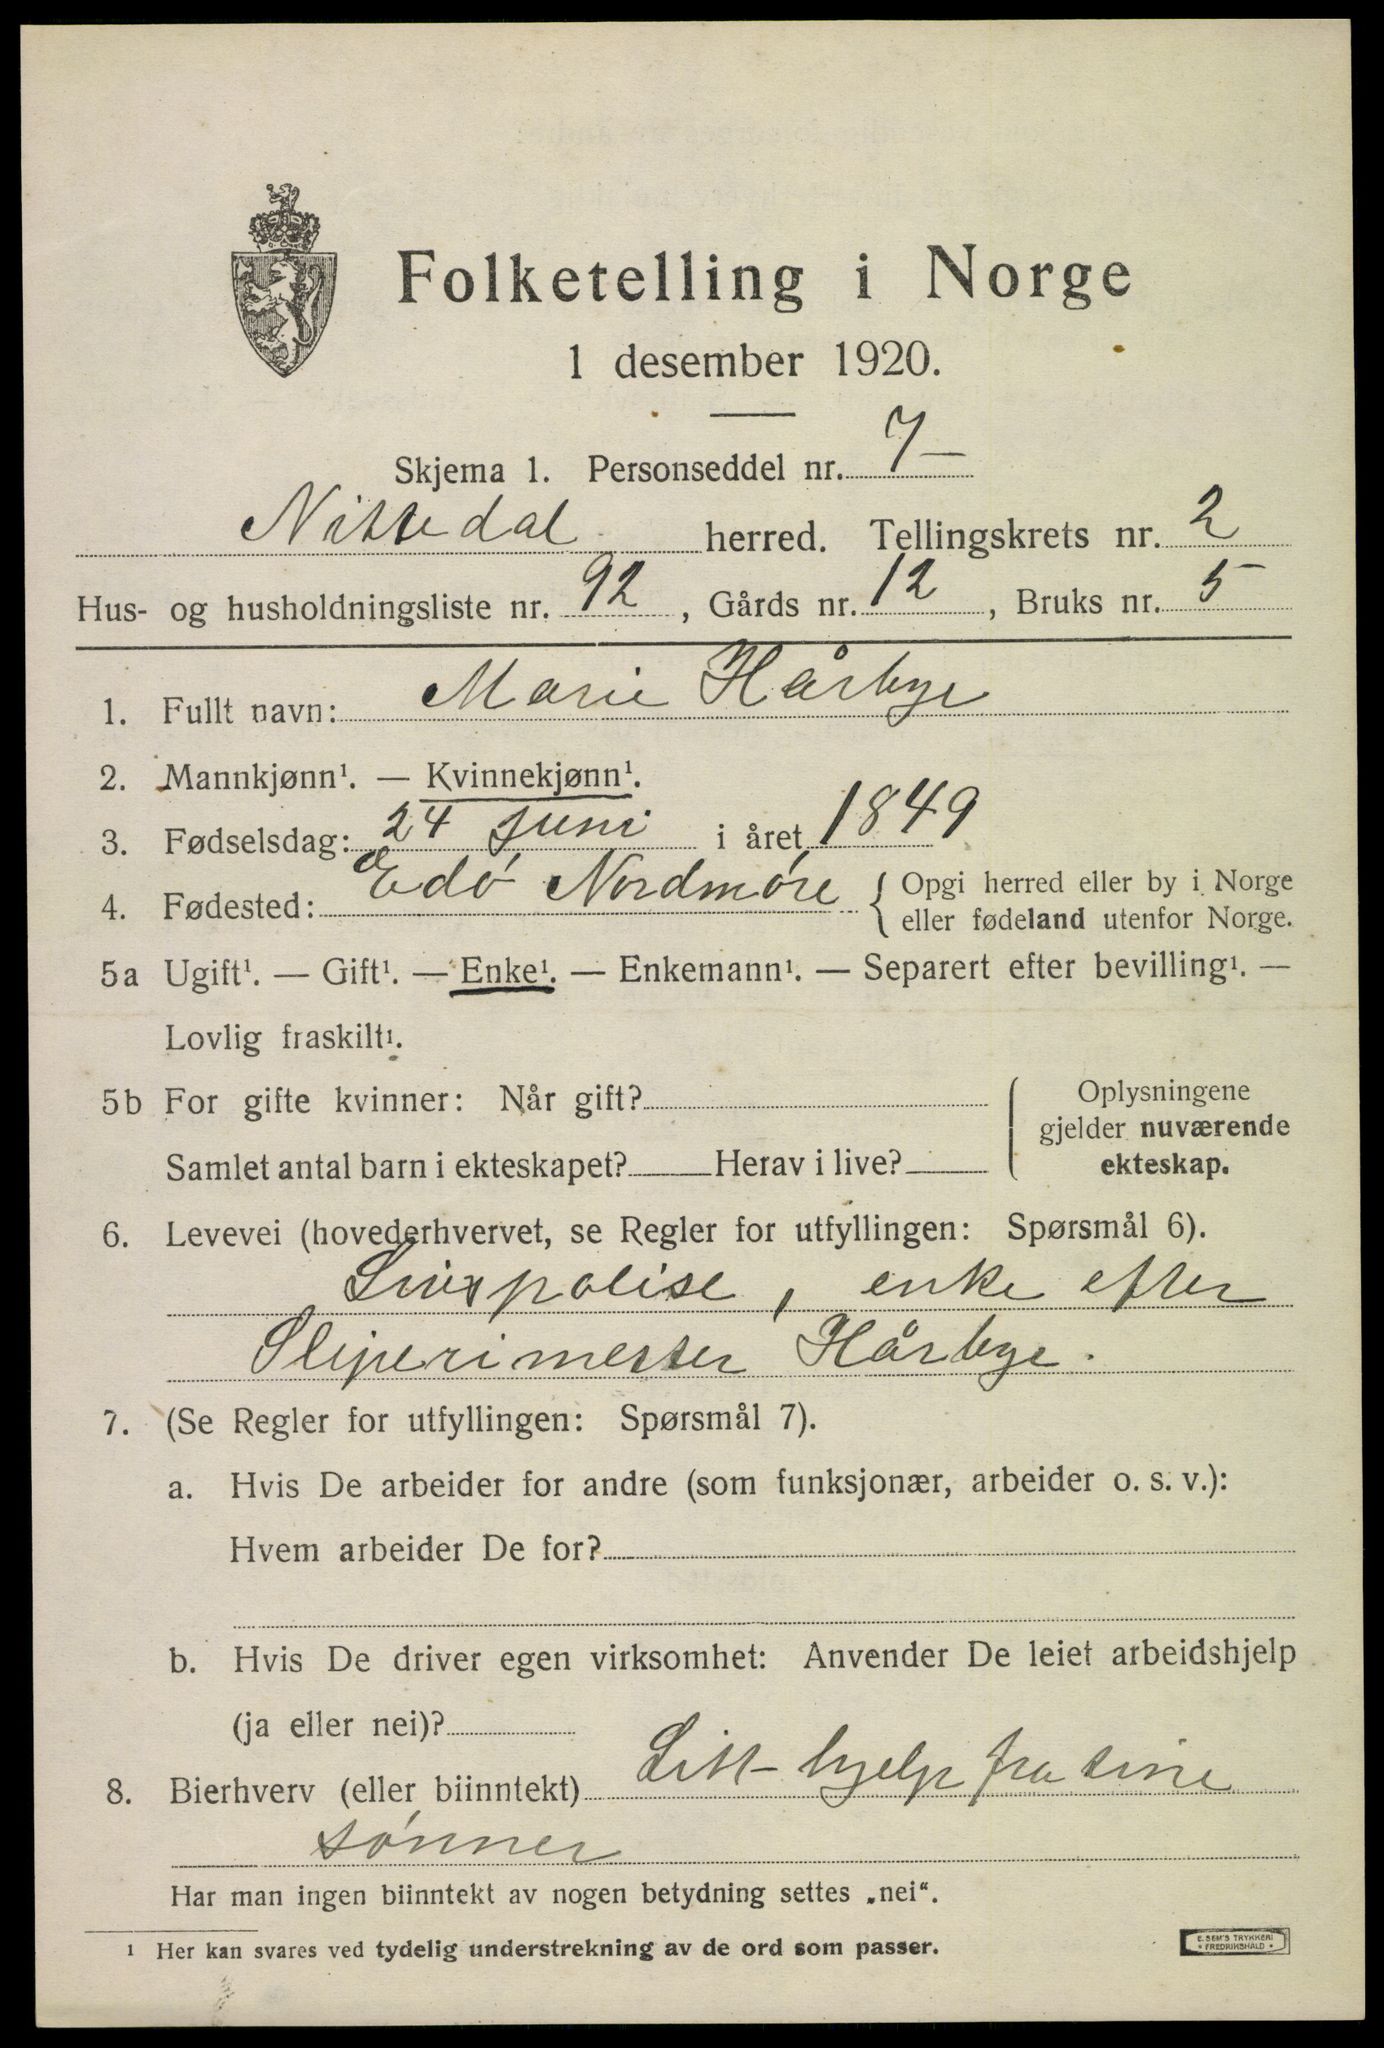 Folketelling i Norge
1 desember 1920.
Skjema 1. Personseddel nr. 7–
Nittedal herred. Tellingskrets nr. 2
Hus- og husholdningsliste nr. 92, Gårds nr. 12, Bruks nr. 5
1. Fullt navn: Marie Hårbye
2. Mannkjønn¹. — Kvinnekjønn¹.
3. Fødselsdag: 24 juni i året 1849
4. Fødested: Edö Nordmøre { Opgi herred eller by i Norge
eller fødeland utenfor Norge.
5a Ugift¹. — Gift¹. — Enke¹. — Enkemann¹. — Separert efter bevilling¹. —
Lovlig fraskilt¹.
5b For gifte kvinner: Når gift?
Samlet antal barn i ekteskapet? Herav i live?
Oplysningene
gjelder nuværende
ekteskap.
6. Levevei (hovederhvervet, se Regler for utfyllingen: Spørsmål 6).
Livspolise, enke efter
Sliperimester Hårbye.
7. (Se Regler for utfyllingen: Spørsmål 7).
a. Hvis De arbeider for andre (som funksjonær, arbeider o. s. v.):
Hvem arbeider De for?
b. Hvis De driver egen virksomhet: Anvender De leiet arbeidshjelp
(ja eller nei)?
8. Bierhverv (eller biinntekt) Litt hjelp fra sine
sönner
Har man ingen biinntekt av nogen betydning settes „nei“.
¹ Her kan svares ved tydelig understrekning av de ord som passer.
E. SEM'S TRYKKERI
• FREDRIKSHALD •